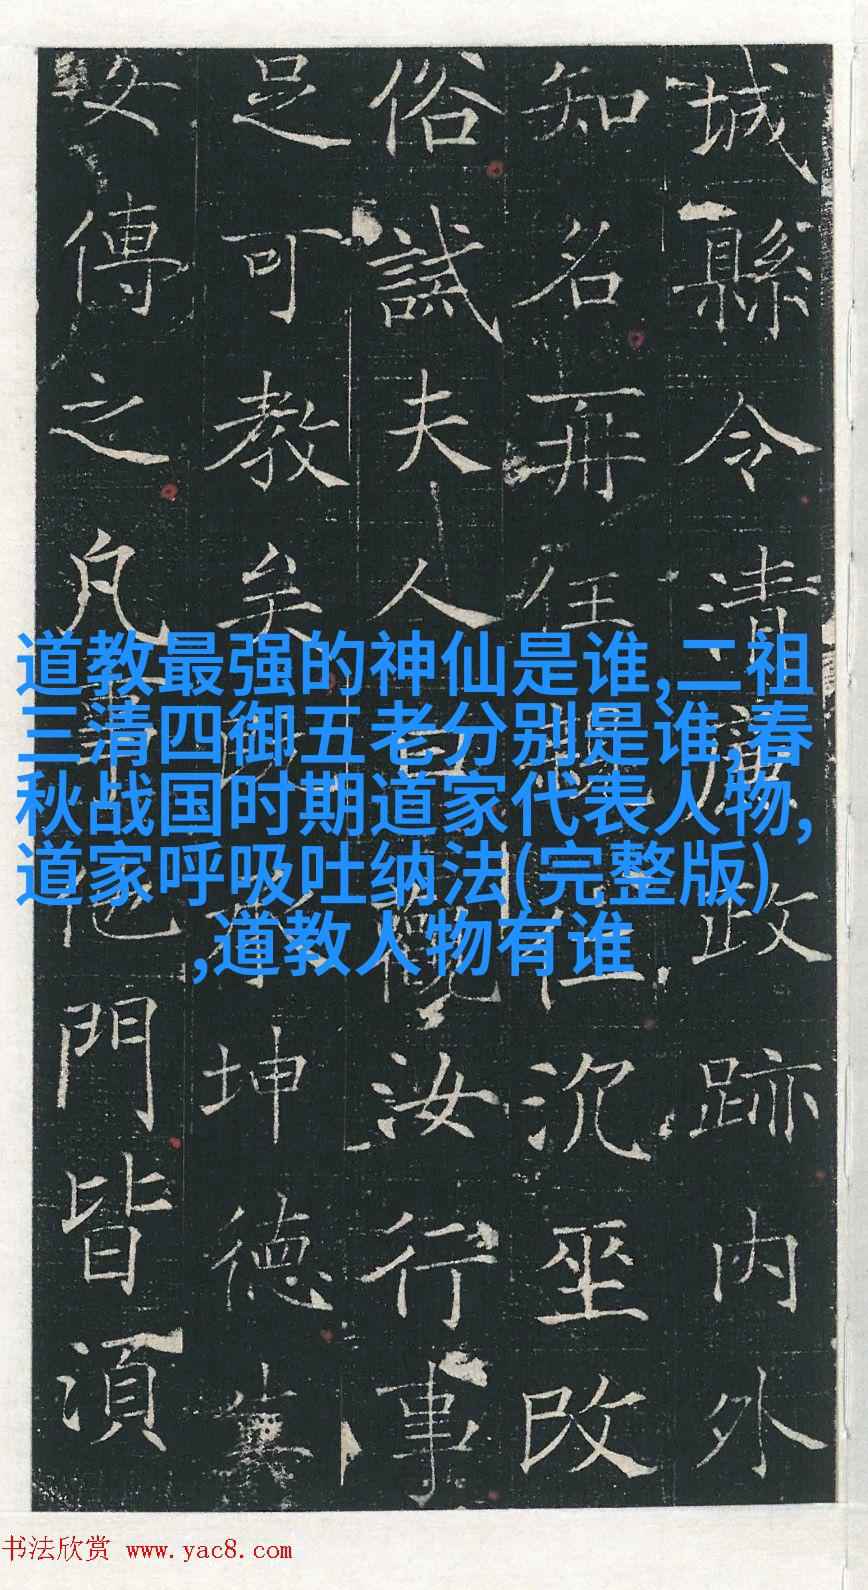 城縣令清廉政跡内外
知名再任沉坐改
俗誠夫人汝行事
足可教矣坤德
女傳之凡他門皆須
道教最强的神仙是谁,二祖
三清四御五老分别是谁,春
秋战国时期道家代表人物,
道家呼吸吐纳法(完整版)
,道教人物有谁
书法欣赏 www.yac8.com